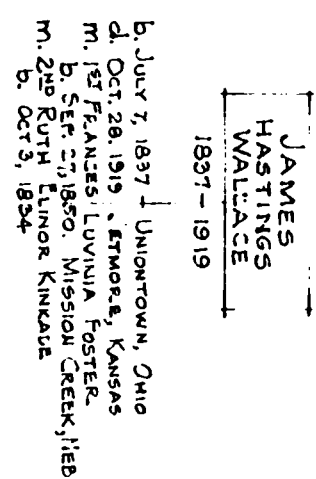 JAMES
HASTINGS
WALLACE
1837-1919
b. JULY 7, 1837 UNIONTOWN, OHIO
d. OCT. 28. 1919 . ETMORE, KANSAS
m. 1ST FRANSES LUVINIA FOSTER
b. SEP. 27, 1850. MISSION CREEK, NEB
m. 2ND RUTH ELINOR KINKADE
b. OCT 3, 1834